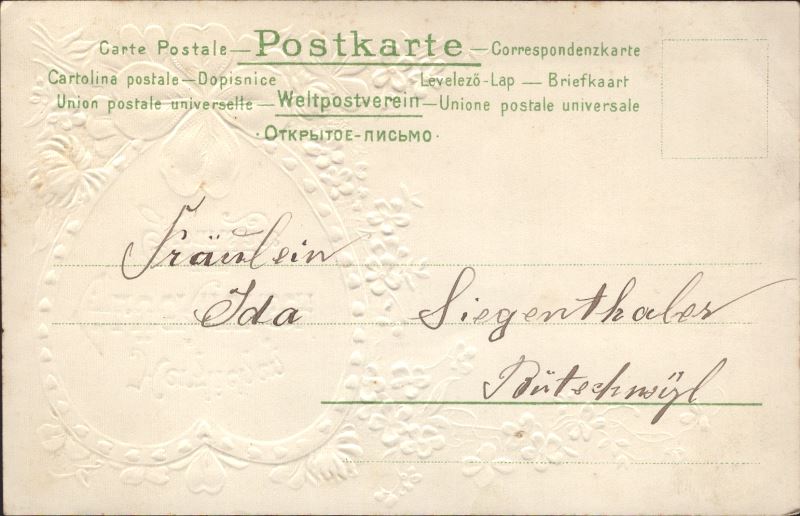 Carte Postale — Postkarte — Correspondenzkarte
Cartolina postale — Dopisnice Levelező-Lap — Briefkaart
Union postale universelle — Weltpostverein — Unione postale universale
· Открытое-письмо ·
Fräulein
Ida Siegenthaler
Bütschwÿl